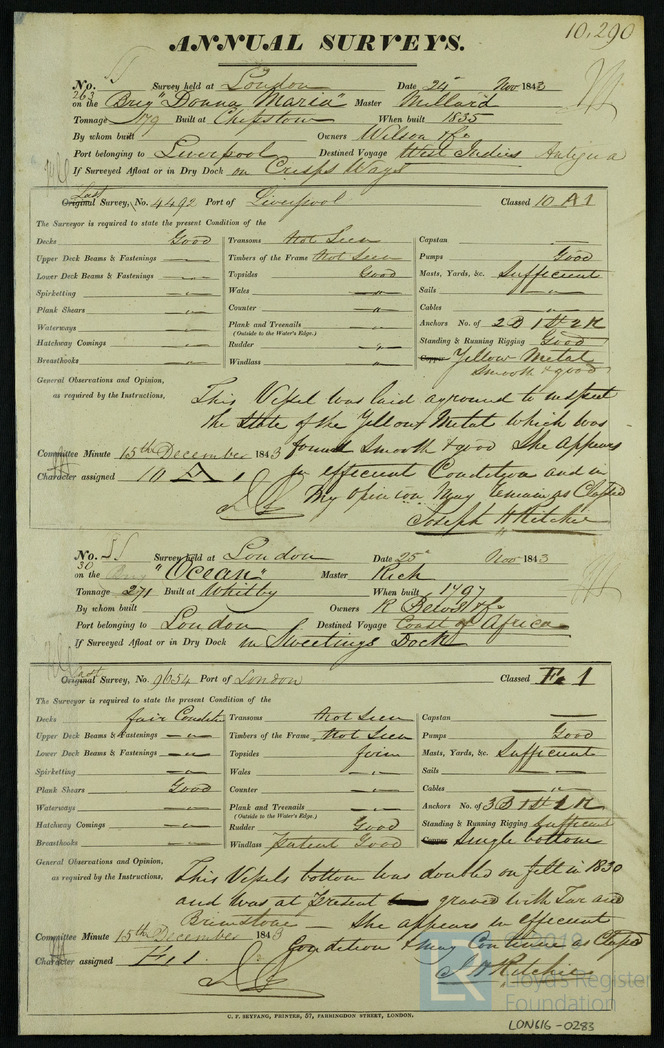 10,290
ANNUAL SURVEYS.
No. 51 Survey held at London Date 24 Nov 1843
263 on the Brig "Donna Maria" Master Millard
Tonnage 179 Built at Chepstow When built 1835
By whom built Owners Wilson & Co
Port belonging to Liverpool Destined Voyage West Indies Antigua
If Surveyed Afloat or in Dry Dock on Crisps Ways
Last
Original Survey, No. 4492 Port of Liverpool Classed 10 A1
The Surveyor is required to state the present Condition of the
Decks Good Transoms Not Seen Capstan —
Upper Deck Beams & Fastenings — Timbers of the Frame Not Seen Pumps Good
Lower Deck Beams & Fastenings — " — Topsides Good Masts, Yards, &c. Sufficient
Spirketting — " — Wales — " — Sails — " —
Plank Shears — " — Counter — " — Cables — " —
Waterways — " — Plank and Treenails — " — Anchors No. of 2 B 1 St 2 K
(Outside to the Water's Edge.)
Hatchway Comings — " — Rudder — " — Standing & Running Rigging Good
Breasthooks " Windlass " Copper Yellow Metal
smooth & good
General Observations and Opinion,
as required by the Instructions,
This Vessel was laid aground to inspect
the State of the Yellow Metal which was
found smooth & good She appears
in efficient Condition and in
my opinion may remain as Classed
Joseph H Ritchie
Committee Minute 15th December 1843
Character assigned 10 A 1
No. 51 Survey held at London Date 25 Nov 1843
30 on the Brig "Ocean" Master Rich
Tonnage 271 Built at Whitby When built 1797
By whom built Owners R & Co
Port belonging to London Destined Voyage Coast of Africa
If Surveyed Afloat or in Dry Dock in Sweetings Dock
Last
Original Survey, No. 9654 Port of London Classed Æ 1
The Surveyor is required to state the present Condition of the
Decks fair Condit Transoms Not Seen Capstan —
Upper Deck Beams & Fastenings — " — Timbers of the Frame Not Seen Pumps Good
Lower Deck Beams & Fastenings — " — Topsides fair Masts, Yards, &c. Sufficient
Spirketting — " — Wales — " — Sails — " —
Plank Shears Good Counter — " — Cables — " —
Waterways — " — Plank and Treenails — " — Anchors No. of 3 B 1 St 2 K
(Outside to the Water's Edge.)
Hatchway Comings — " — Rudder Good Standing & Running Rigging Sufficient
Breasthooks — " — Windlass Patent Good Copper Single bottom
General Observations and Opinion,
as required by the Instructions,
This Vessels bottom was doubled on felt in 1830
and was at present graved with Tar and
Brimstone — She appears in efficient
Condition & may Continue as Classed
J H Ritchie
Committee Minute 15th December 1843
Character assigned Æ 1
C. F. SEYFANG, PRINTER, 57, FARRINGDON STREET, LONDON.
©2019
Lloyd's Register
Foundation
LON616-0283